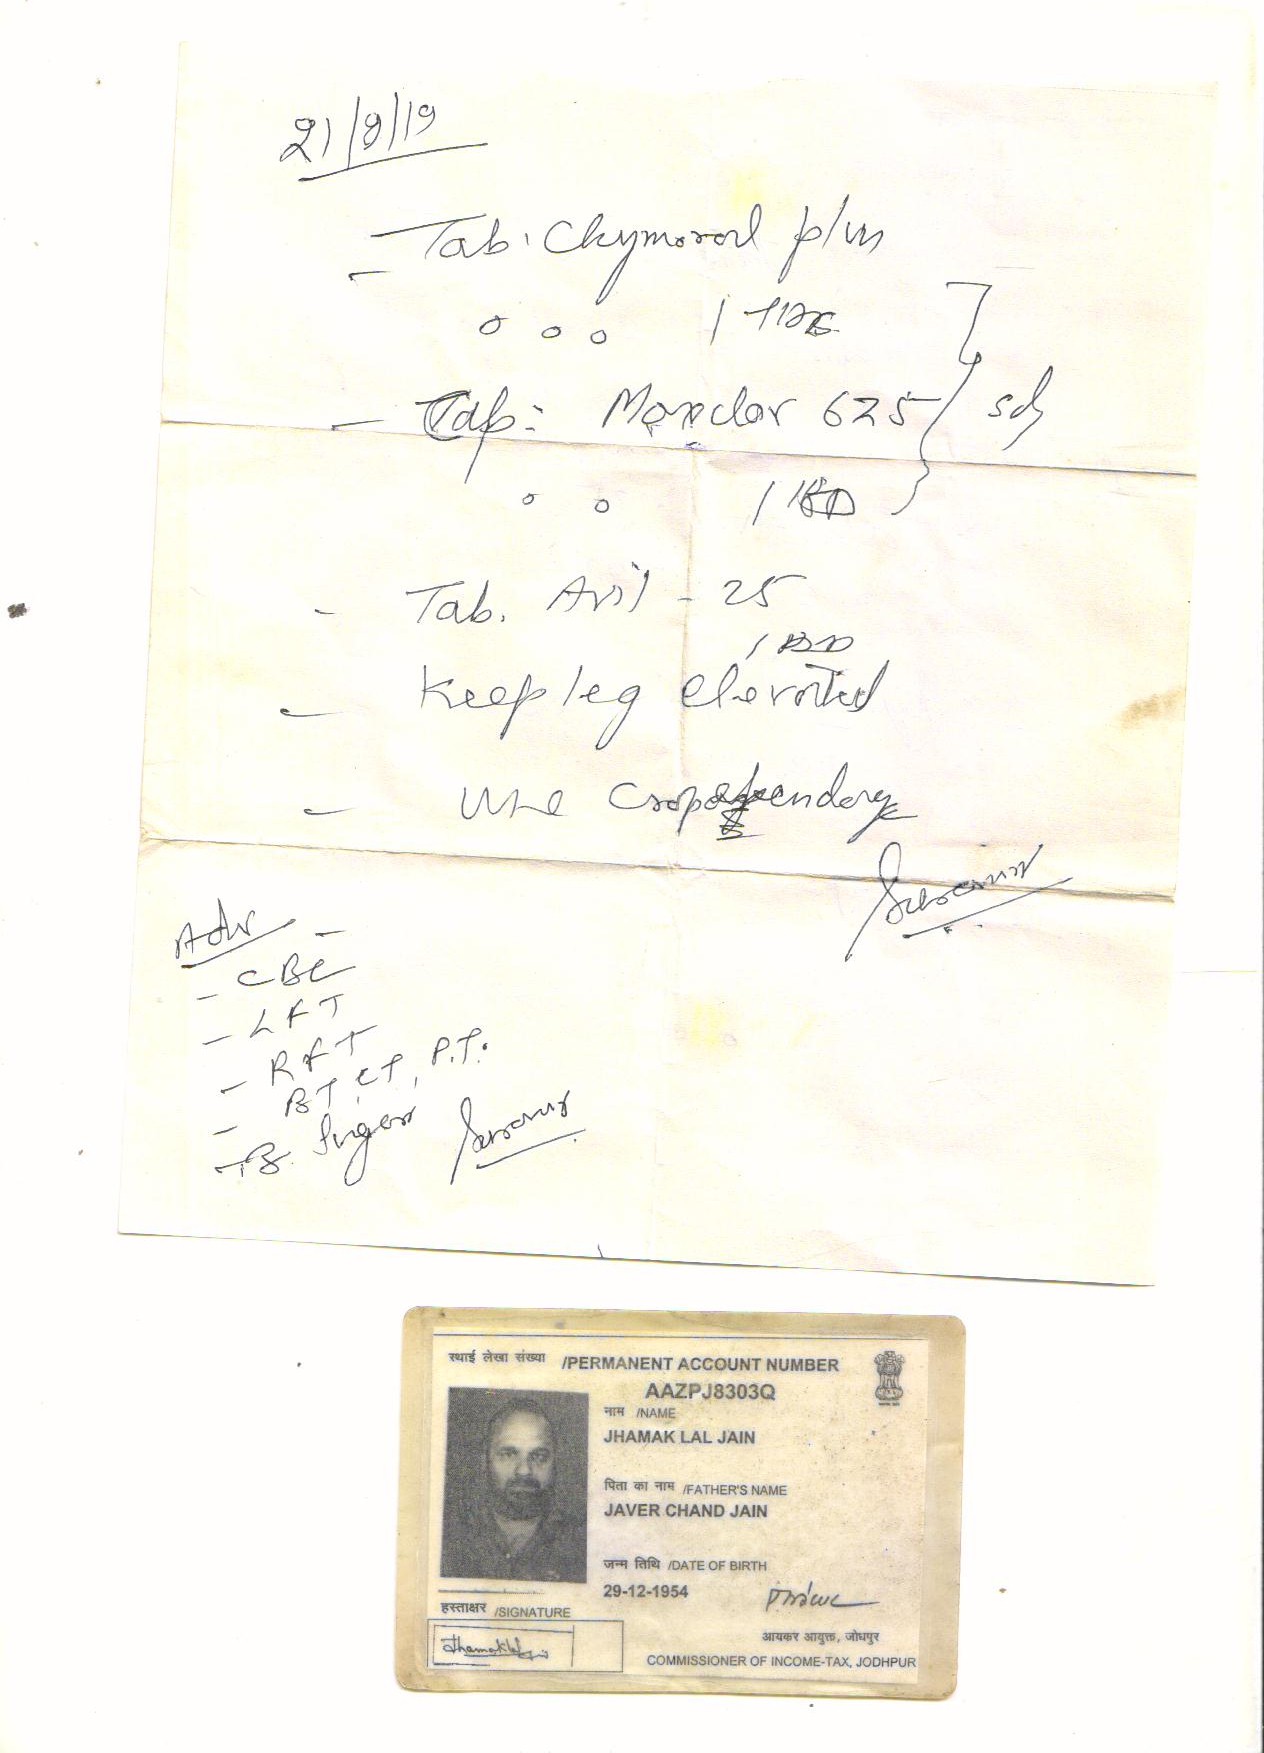 21/9/19
- Tab. Chymoral plus
o o o 1 TDS
- Tab: Moxclav 625 5d
o o 1 BD
- Tab. Avil - 25
1 BD
- Keep leg elevated
- Use
Adv
- CBC
- LFT
- RFT
- BT, CT, P.T.
- B. Sugar
स्थाई लेखा संख्या /PERMANENT ACCOUNT NUMBER
AAZPJ8303Q
नाम /NAME
JHAMAK LAL JAIN
पिता का नाम /FATHER'S NAME
JAVER CHAND JAIN
जन्म तिथि /DATE OF BIRTH
29-12-1954
हस्ताक्षर /SIGNATURE
आयकर आयुक्त, जोधपुर
COMMISSIONER OF INCOME-TAX, JODHPUR